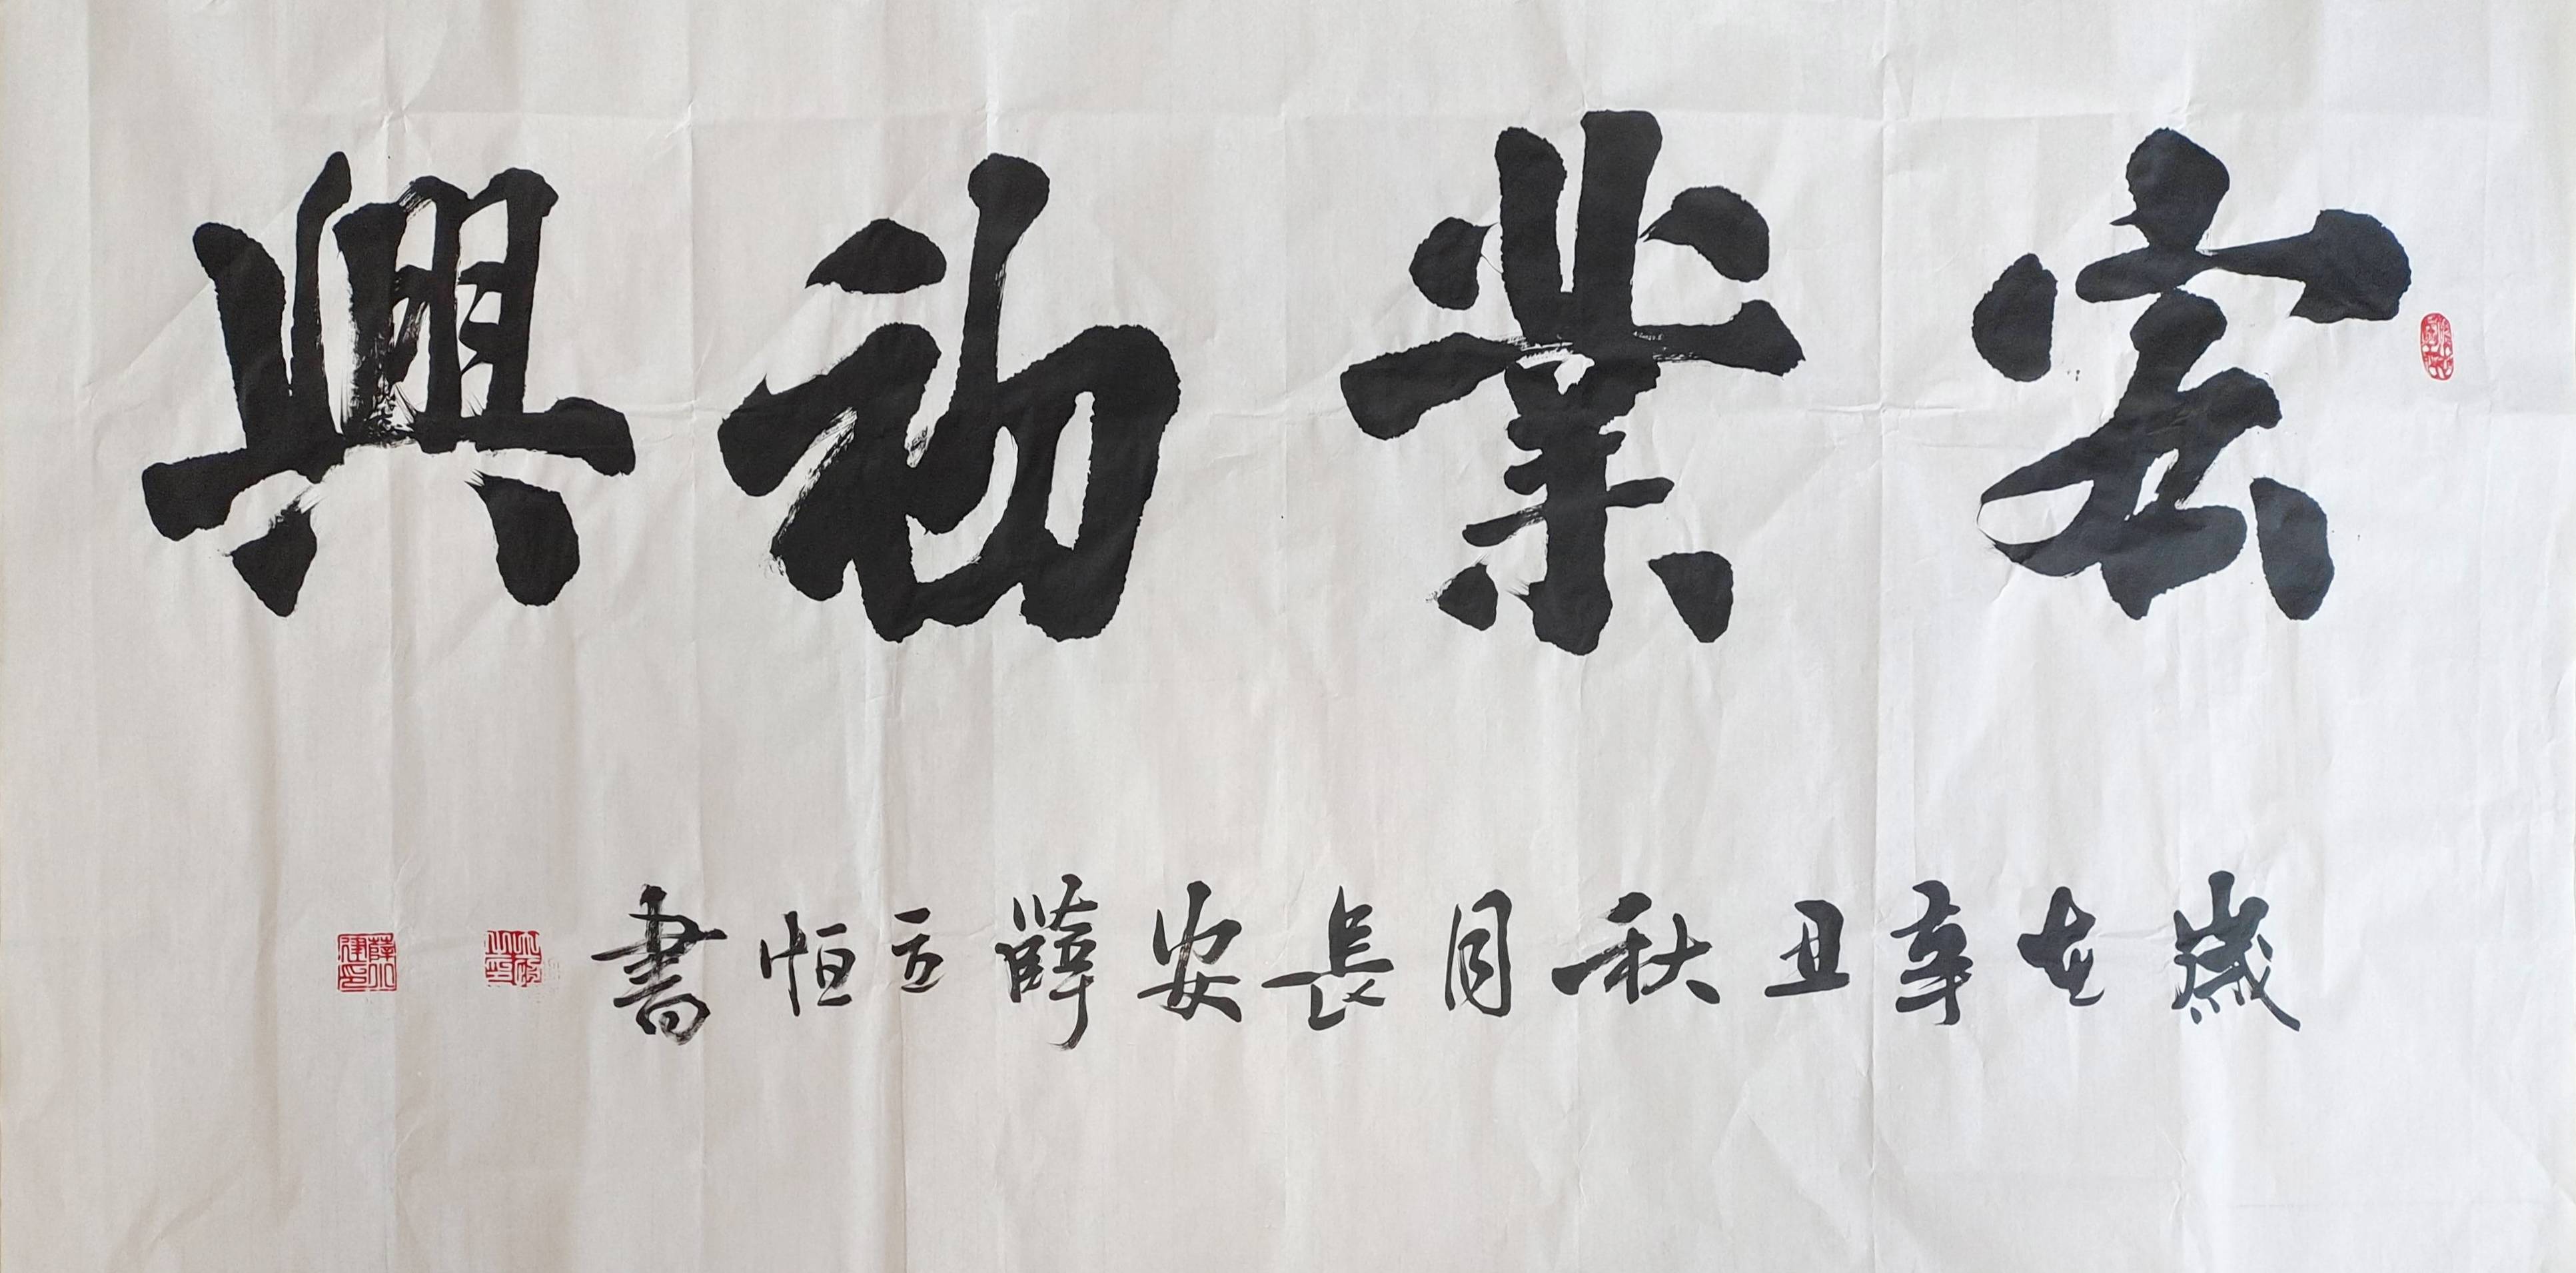 宏業初興
歲在辛丑秋月長安薛立恒書